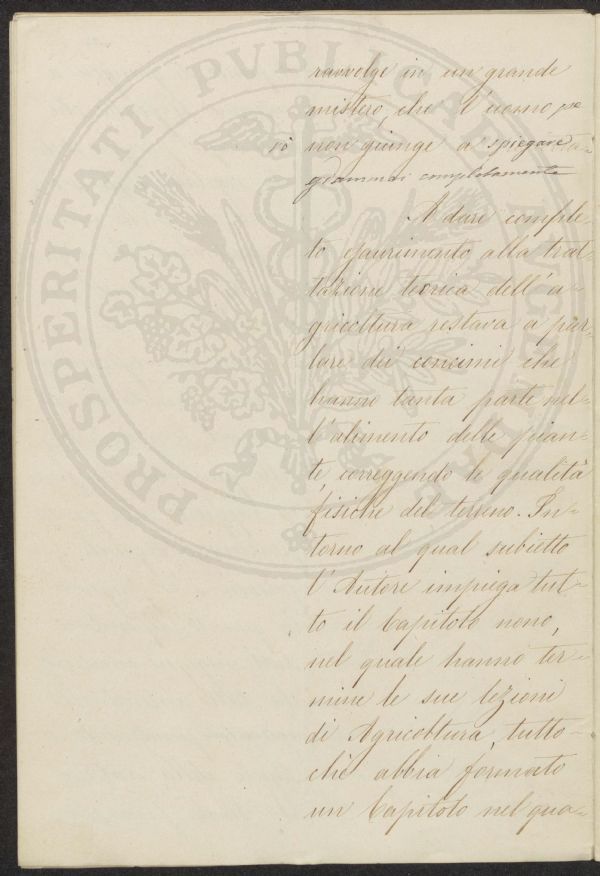 PROSPERITATI PVBLICAE AVGENDAE
ravvolge in un grande
mistero, che l'uomo pe
rò non giunge a spiegare
giammai completamente
A dare comple-
to esaurimento alla trat-
tazione teorica dell'a-
gricoltura restava a par-
lare dei concimi che
hanno tanta parte nel-
l'alimento delle pian-
te, correggendo le qualità
fisiche del terreno. In-
torno al qual subietto
l'Autore impiega tut-
to il Capitolo nono,
nel quale hanno ter-
mine le sue lezioni
di Agricoltura, tutto-
chè abbia formato
un Capitolo nel qua-